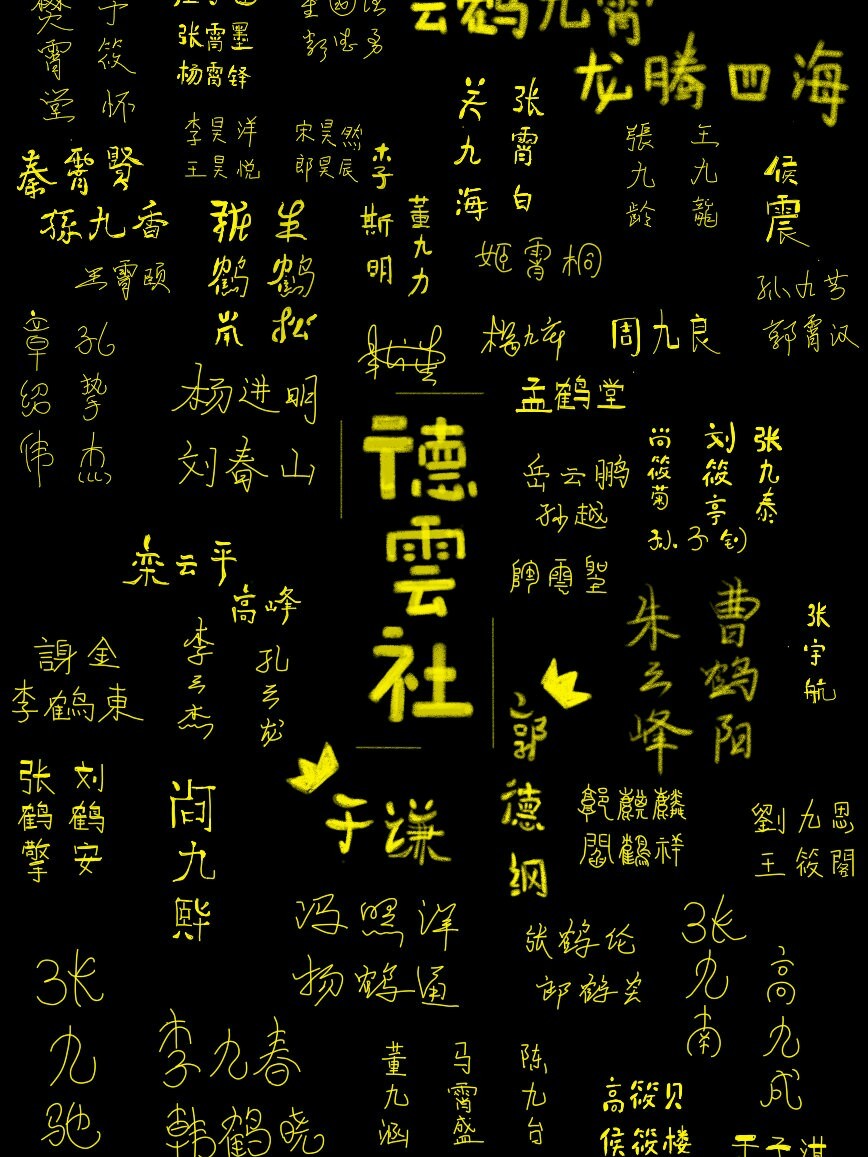 樊霄堂
于筱怀
张霄墨
杨霄铎
云鹤九霄
龙腾四海
李昊洋
王昊悦
宋昊然
郎昊辰
李斯明
关九海
张霄白
張九龄
王九龍
侯震
秦霄賢
孫九香
董九力
姬霄桐
孙九芳
郭霄汉
章绍伟
孔挚杰
杨进明
刘春山
周九良
孟鹤堂
德雲社
岳云鹏
孙越
尚筱菊
刘筱亭
张九泰
栾云平
高峰
謝金
李鶴東
李云杰
孔云龙
朱云峰
曹鹤阳
张宇航
郭德纲
于谦
张鹤擎
刘鹤安
尚九熙
郭麒麟
閻鶴祥
劉九思
王筱閣
冯照洋
杨鹤通
张鹤伦
郎鹤炎
张九南
高九成
张九驰
李九春
韩鹤晓
董九涵
马霄盛
陈九台
高筱贝
侯筱楼